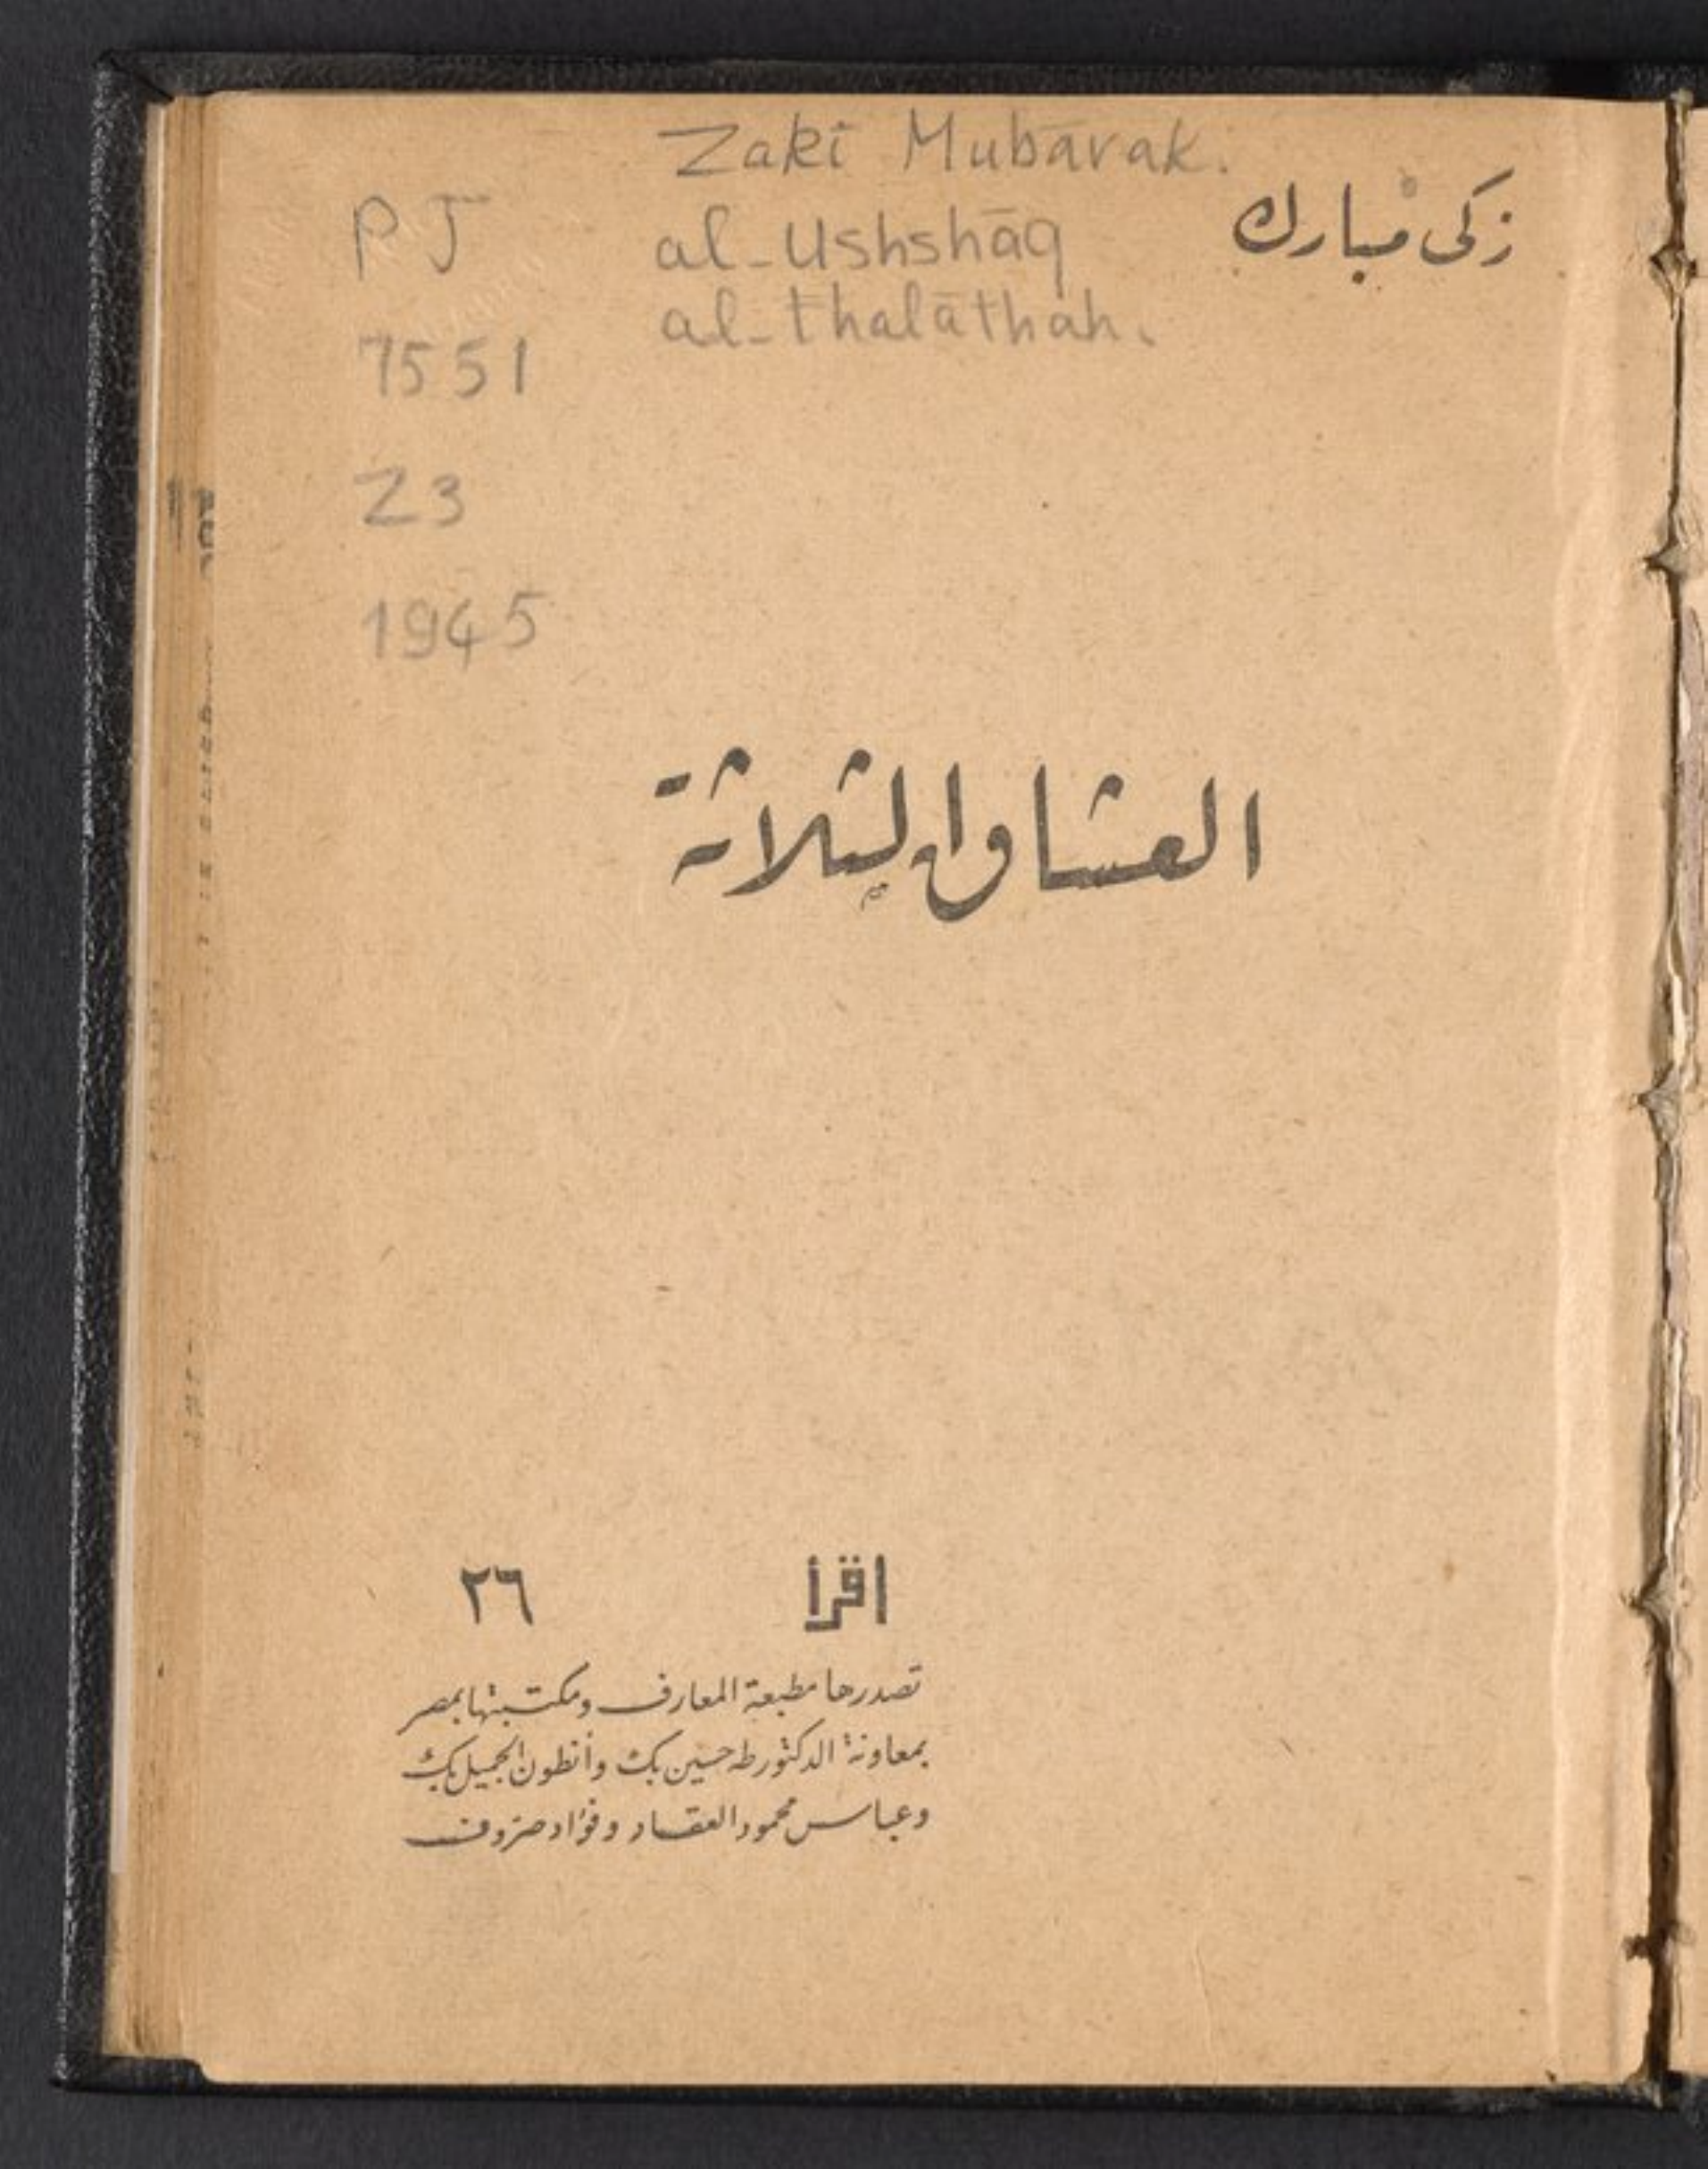 Zaki Mubārak.
زكى مبارك
PJ
al-Ushshāq
al-thalāthah.
7551
Z3
1945
العشاق الثلاثة
اقرأ ٢٦
تصدرها مطبعة المعارف ومكتبتها بمصر
بمعاونة الدكتور طه حسين بك وأنطون الجميل بك
وعباس محمود العقاد وفؤاد صروف